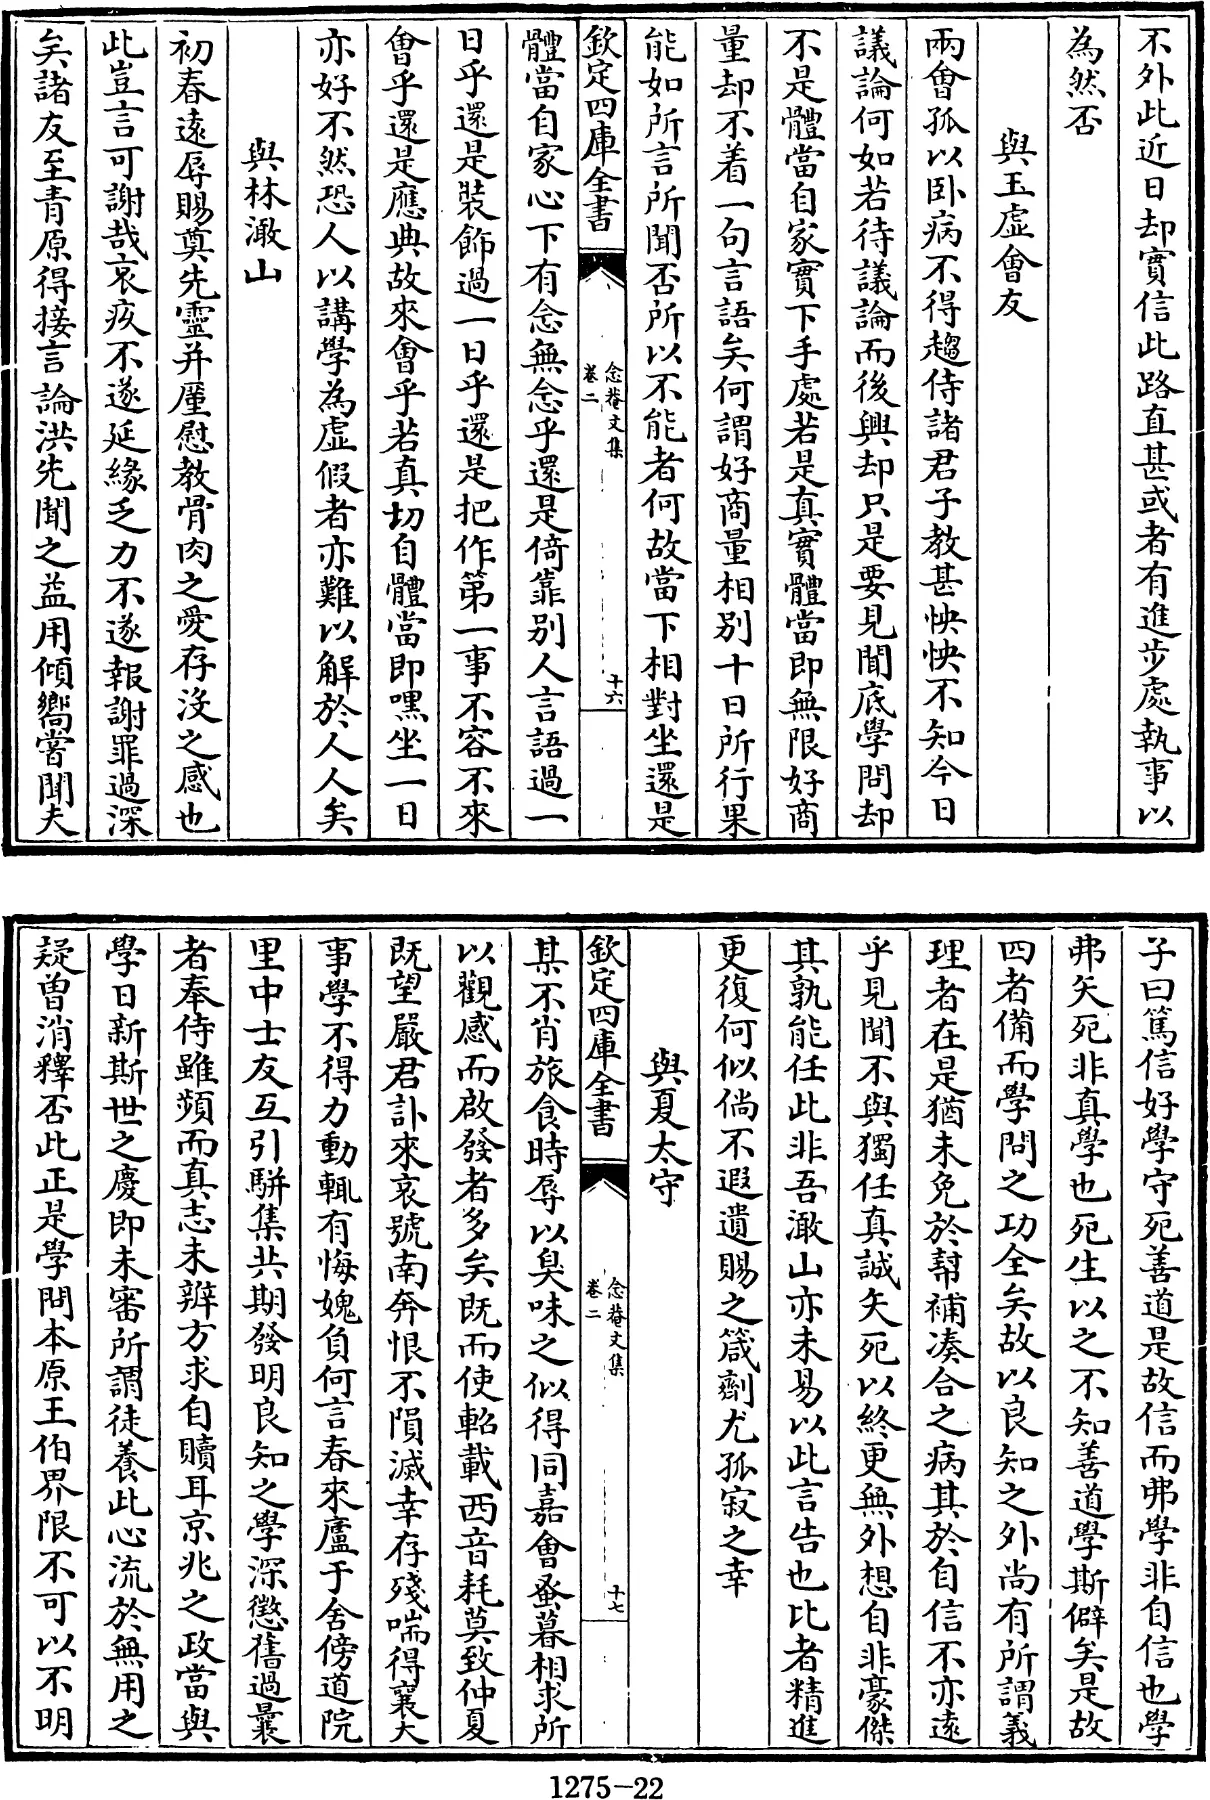 不外此近日却實信此路直甚或者有進步處執事以
為然否
與玉虛會友
兩會孤以卧病不得趨侍諸君子教甚怏怏不知今日
議論何如若待議論而後興却只是要見聞底學問却
不是體當自家實下手處若是真實體當即無限好商
量却不着一句言語矣何謂好商量相別十日所行果
能如所言所聞否所以不能者何故當下相對坐還是
欽定四庫全書
念菴文集
卷二
十六
體當自家心下有念無念乎還是倚靠別人言語過一
日乎還是裝飾過一日乎還是把作第一事不容不來
會乎還是應典故來會乎若真切自體當即嘿坐一日
亦好不然恐人以講學為虛假者亦難以解於人人矣
與林澉山
初春遠辱賜奠先靈并厪慰教骨肉之愛存沒之感也
此豈言可謝哉哀疚不遂延緣乏力不遂報謝罪過深
矣諸友至青原得接言論洪先聞之益用傾嚮嘗聞夫
子曰篤信好學守死善道是故信而弗學非自信也學
弗矢死非真學也死生以之不知善道學斯僻矣是故
四者備而學問之功全矣故以良知之外尚有所謂義
理者在是猶未免於幫補湊合之病其於自信不亦遠
乎見聞不與獨任真誠矢死以終更無外想自非豪傑
其孰能任此非吾澉山亦未易以此言告也比者精進
更復何似倘不遐遺賜之箴劑尤孤寂之幸
與夏太守
欽定四庫全書
念菴文集
卷二
十七
某不肖旅食時辱以臭味之似得同嘉會蚤暮相求所
以觀感而啟發者多矣既而使軺載西音耗莫致仲夏
既望嚴君訃來哀號南奔恨不隕滅幸存殘喘得襄大
事學不得力動輒有悔媿負何言春來廬于舍傍道院
里中士友互引駢集共期發明良知之學深懲舊過曩
者奉侍雖頻而真志未辨方求自贖耳京兆之政當與
學日新斯世之慶即未審所謂徒養此心流於無用之
疑曾消釋否此正是學問本原王伯界限不可以不明
1275-22